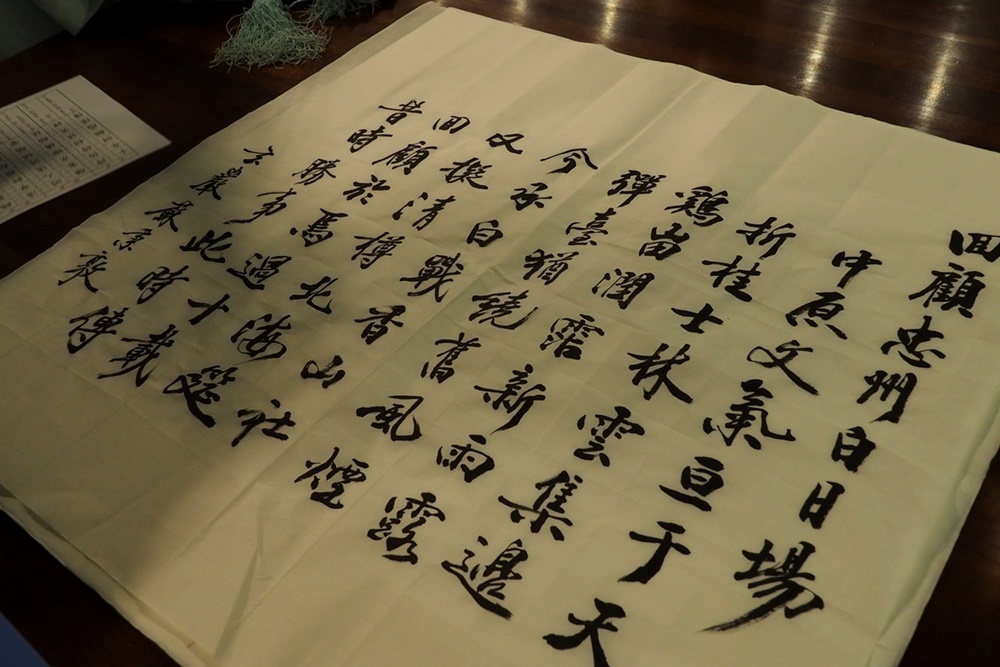 回顧忠州白日場
中原文氣亘于天
折桂士林雲集邊
鷄苗潤霑新雨露
彈臺猶繞舊風煙
今承白戰香山社
又擬清樽北海筵
回顧於焉過十載
昔時勝事此時傳
巖 嚴